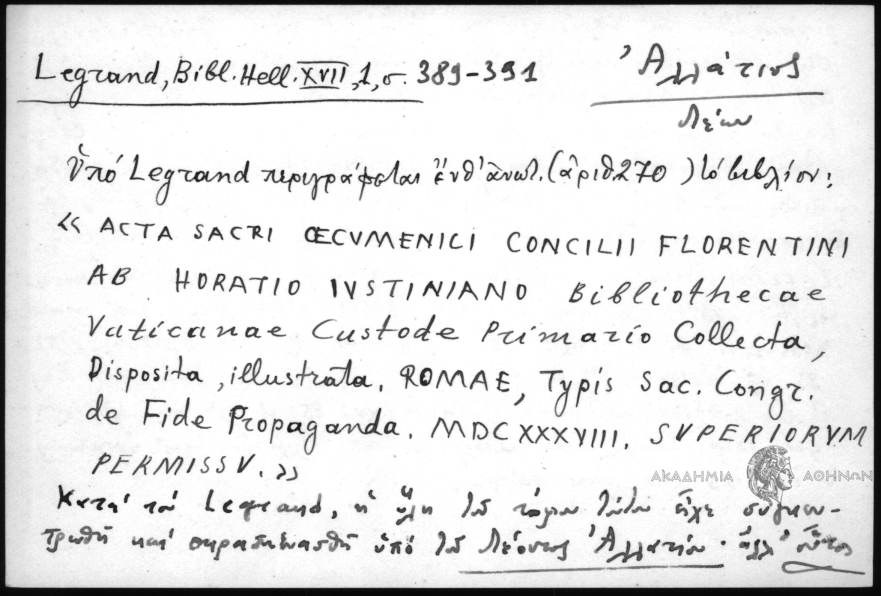 Legrand, Bibl. Hell. XVII, 1, σ. 389-391
Ἀλλάτιος
Λέων
ὑπό Legrand περιγράφεται ἔνθ' ἀνωτ. (ἀριθ. 270) τό βιβλίον:
« ACTA SACRI ŒCVMENICI CONCILII FLORENTINI
AB HORATIO IVSTINIANO Bibliothecae
Vaticanae Custode Primario Collecta,
Disposita, illustrata. ROMAE, Typis Sac. Congr.
de Fide Propaganda. MDCXXXVIII. SVPERIORVM
PERMISSV. »
ΑΚΑΔΗΜΙΑ ΑΘΗΝΩΝ
Κατά τόν Legrand, ἡ ὕλη τοῦ τόμου τούτου εἶχε συγκεν-
τρωθῆ καί παρασκευασθῆ ὑπό τοῦ Λέοντος Ἀλλατίου· ἀλλ' οὗτος